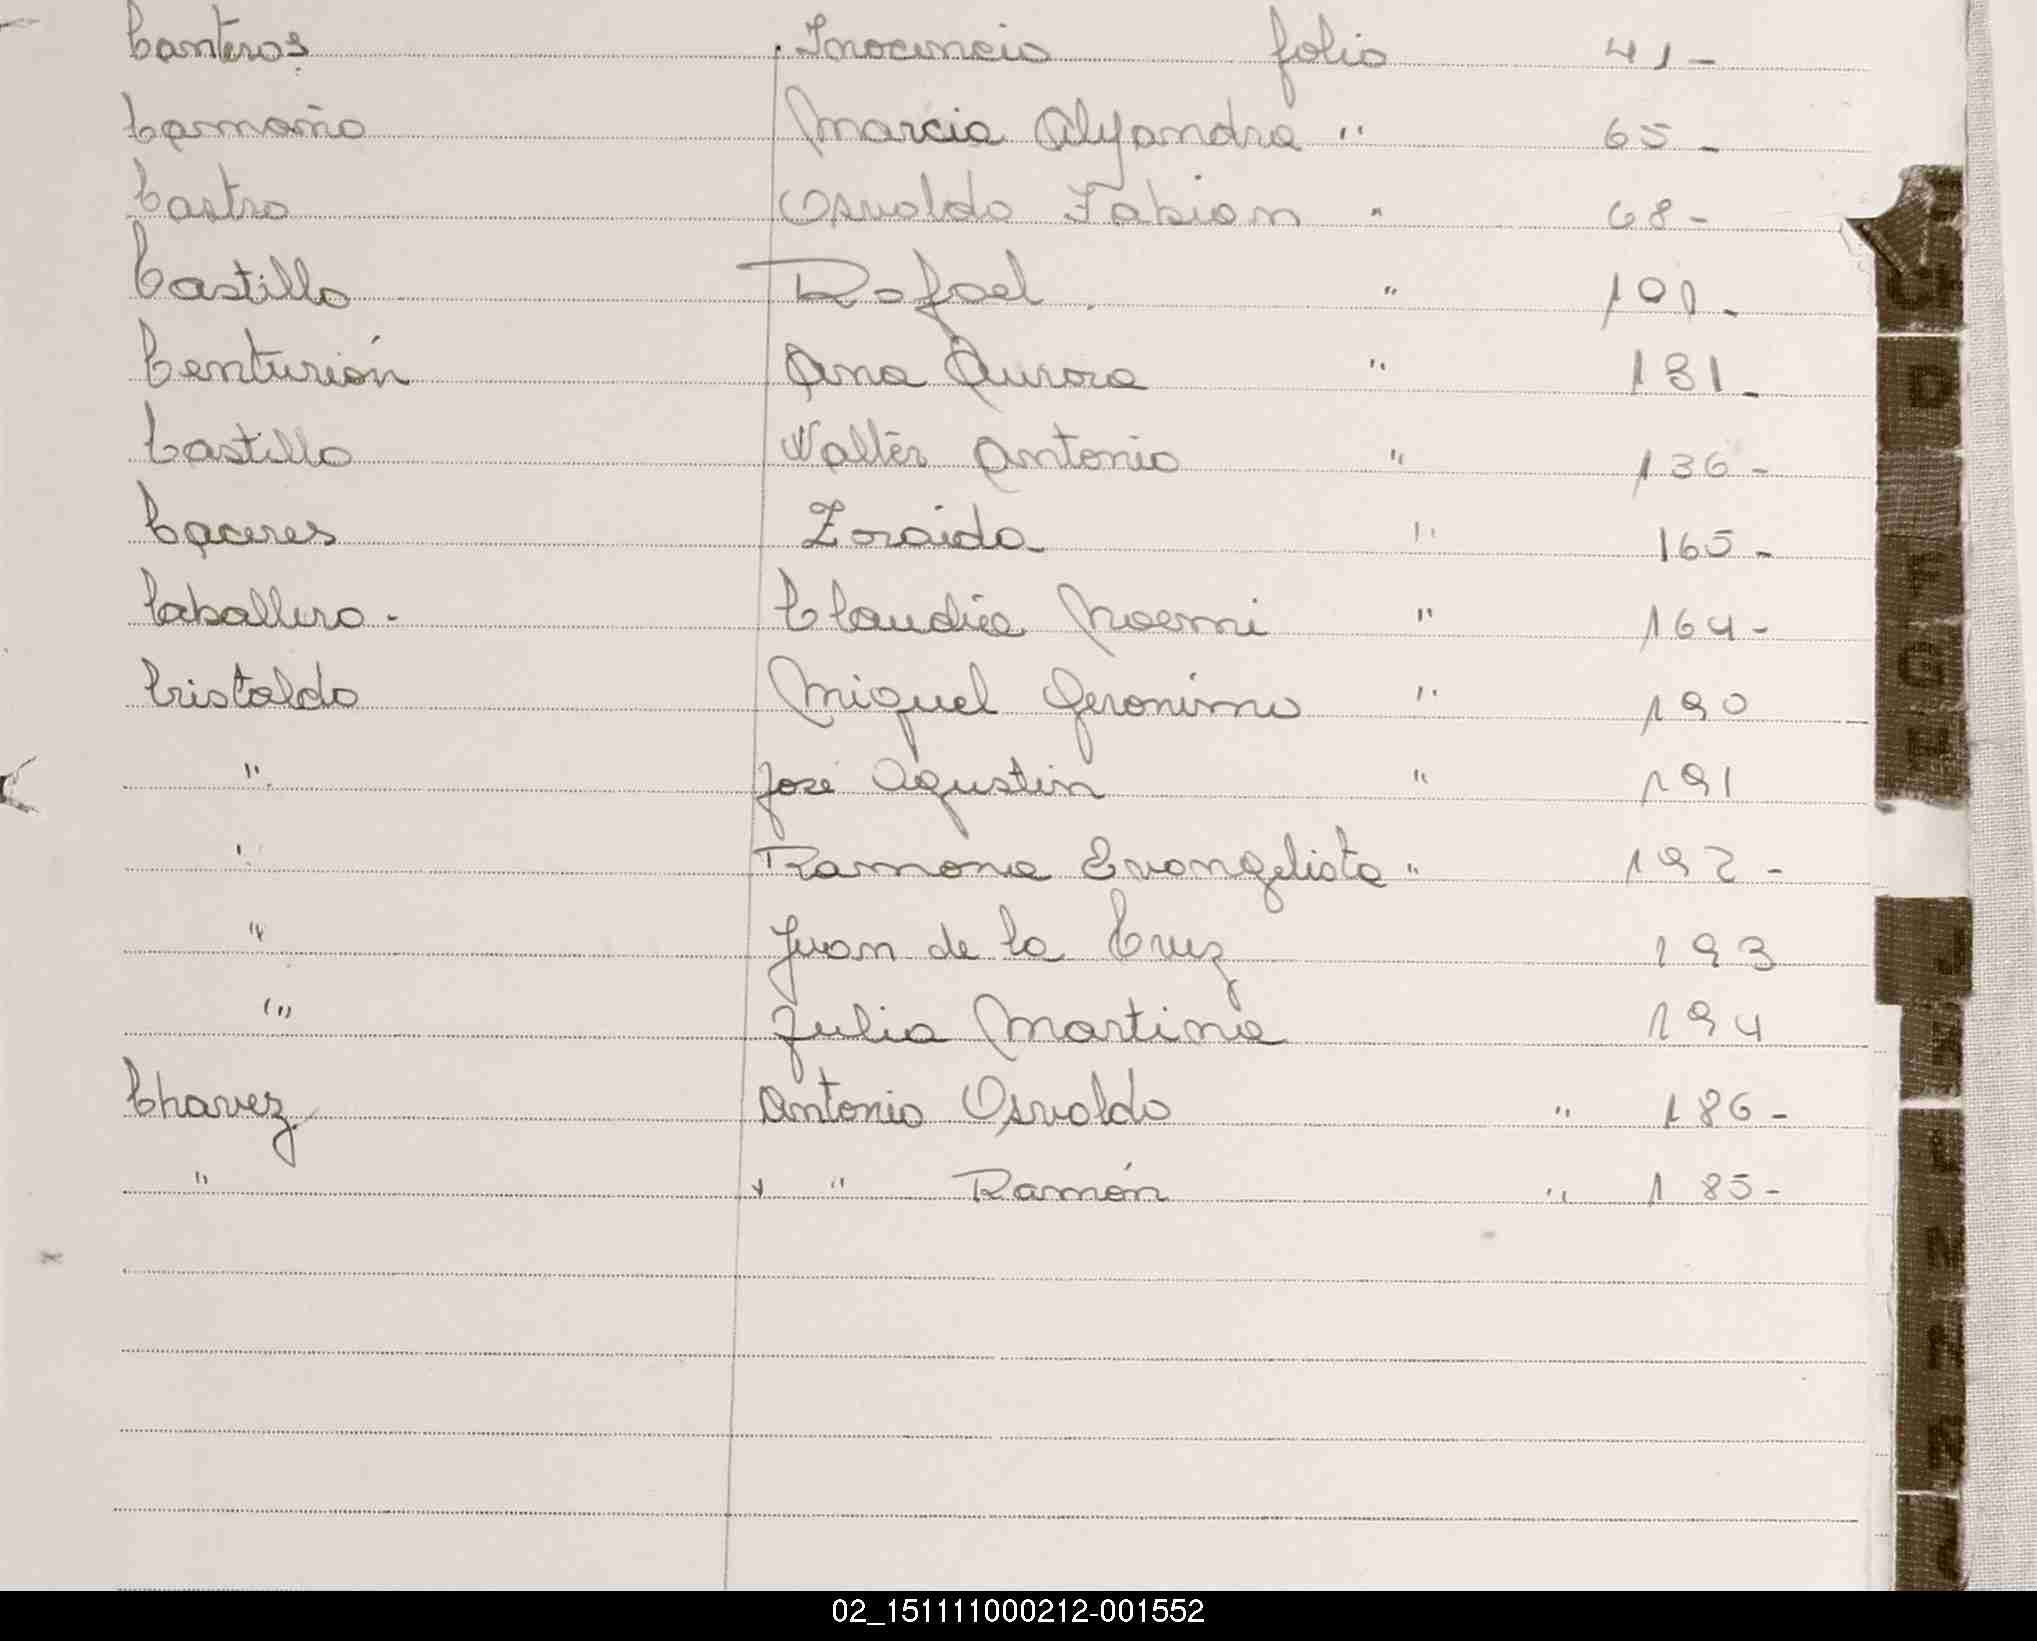 Canteros Inocencio folio 41-
Camaño Marcia Alejandra " 65-
Castro Osvaldo Fabian " 68-
Castillo Rafael " 101-
Centurión Ana Aurora " 131-
Castillo Walter Antonio " 136-
Caceres Zoraida " 165-
Caballero - Claudia Noemi " 164-
Cristaldo Miguel Geronimo " 190
" José Agustin " 191
" Ramona Evangelista " 192-
" Juan de la Cruz 193
" Julia Martina 194
Chavez Antonio Osvaldo " 186-
" " Ramón " 185-
D
F
G
H
J
L
N
02_151111000212-001552